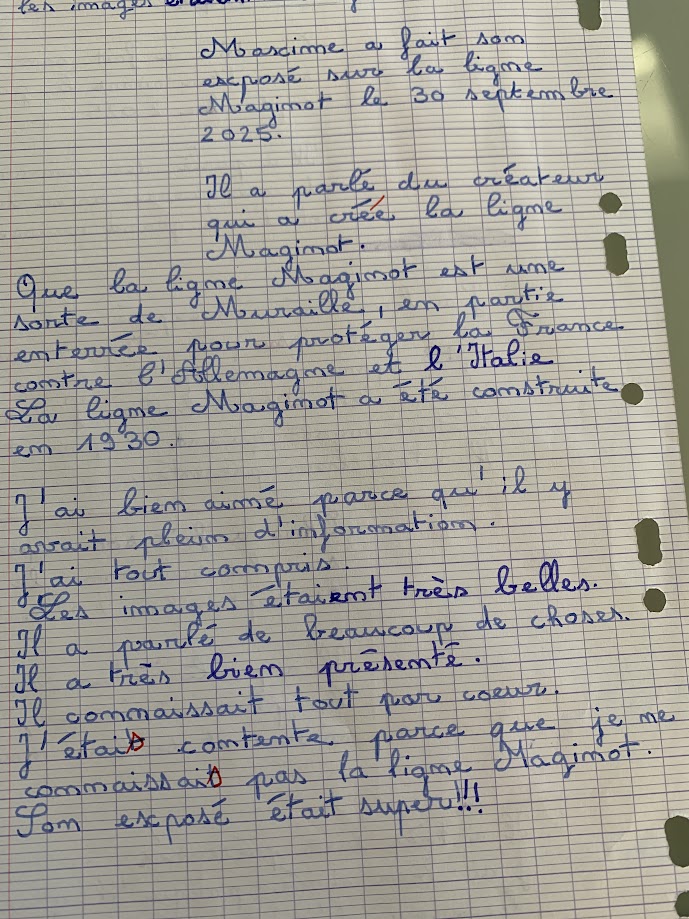 les images étaient
Maxime a fait son
exposé sur la ligne
Maginot le 30 septembre
2025.
Il a parlé du créateur
qui a créé la ligne
Maginot.
Que la ligne Maginot est une
sorte de Muraille, en partie
enterrée pour protéger la France
contre l'Allemagne et l'Italie
La ligne Maginot a été construite
en 1930.
J'ai bien aimé parce qu'il y
avait plein d'information.
J'ai tout compris.
Les images étaient très belles.
Il a parlé de beaucoup de choses.
Il a très bien présenté.
Il connaissait tout par coeur.
J'étais contente parce que je ne
connaissais pas la ligne Maginot.
Son exposé était super!!!